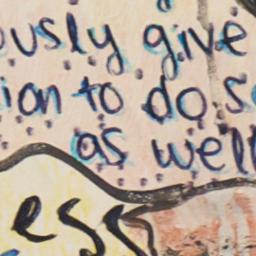 ously give
ion to do s
as well
ess